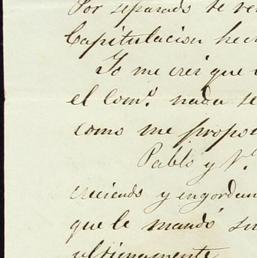 Por separado te re
Capitulacion hec
Yo me creí que
el Com.º nada se
como me propo
Pablo y N.
creciendo y engordan
que le mandó su
ultimamente